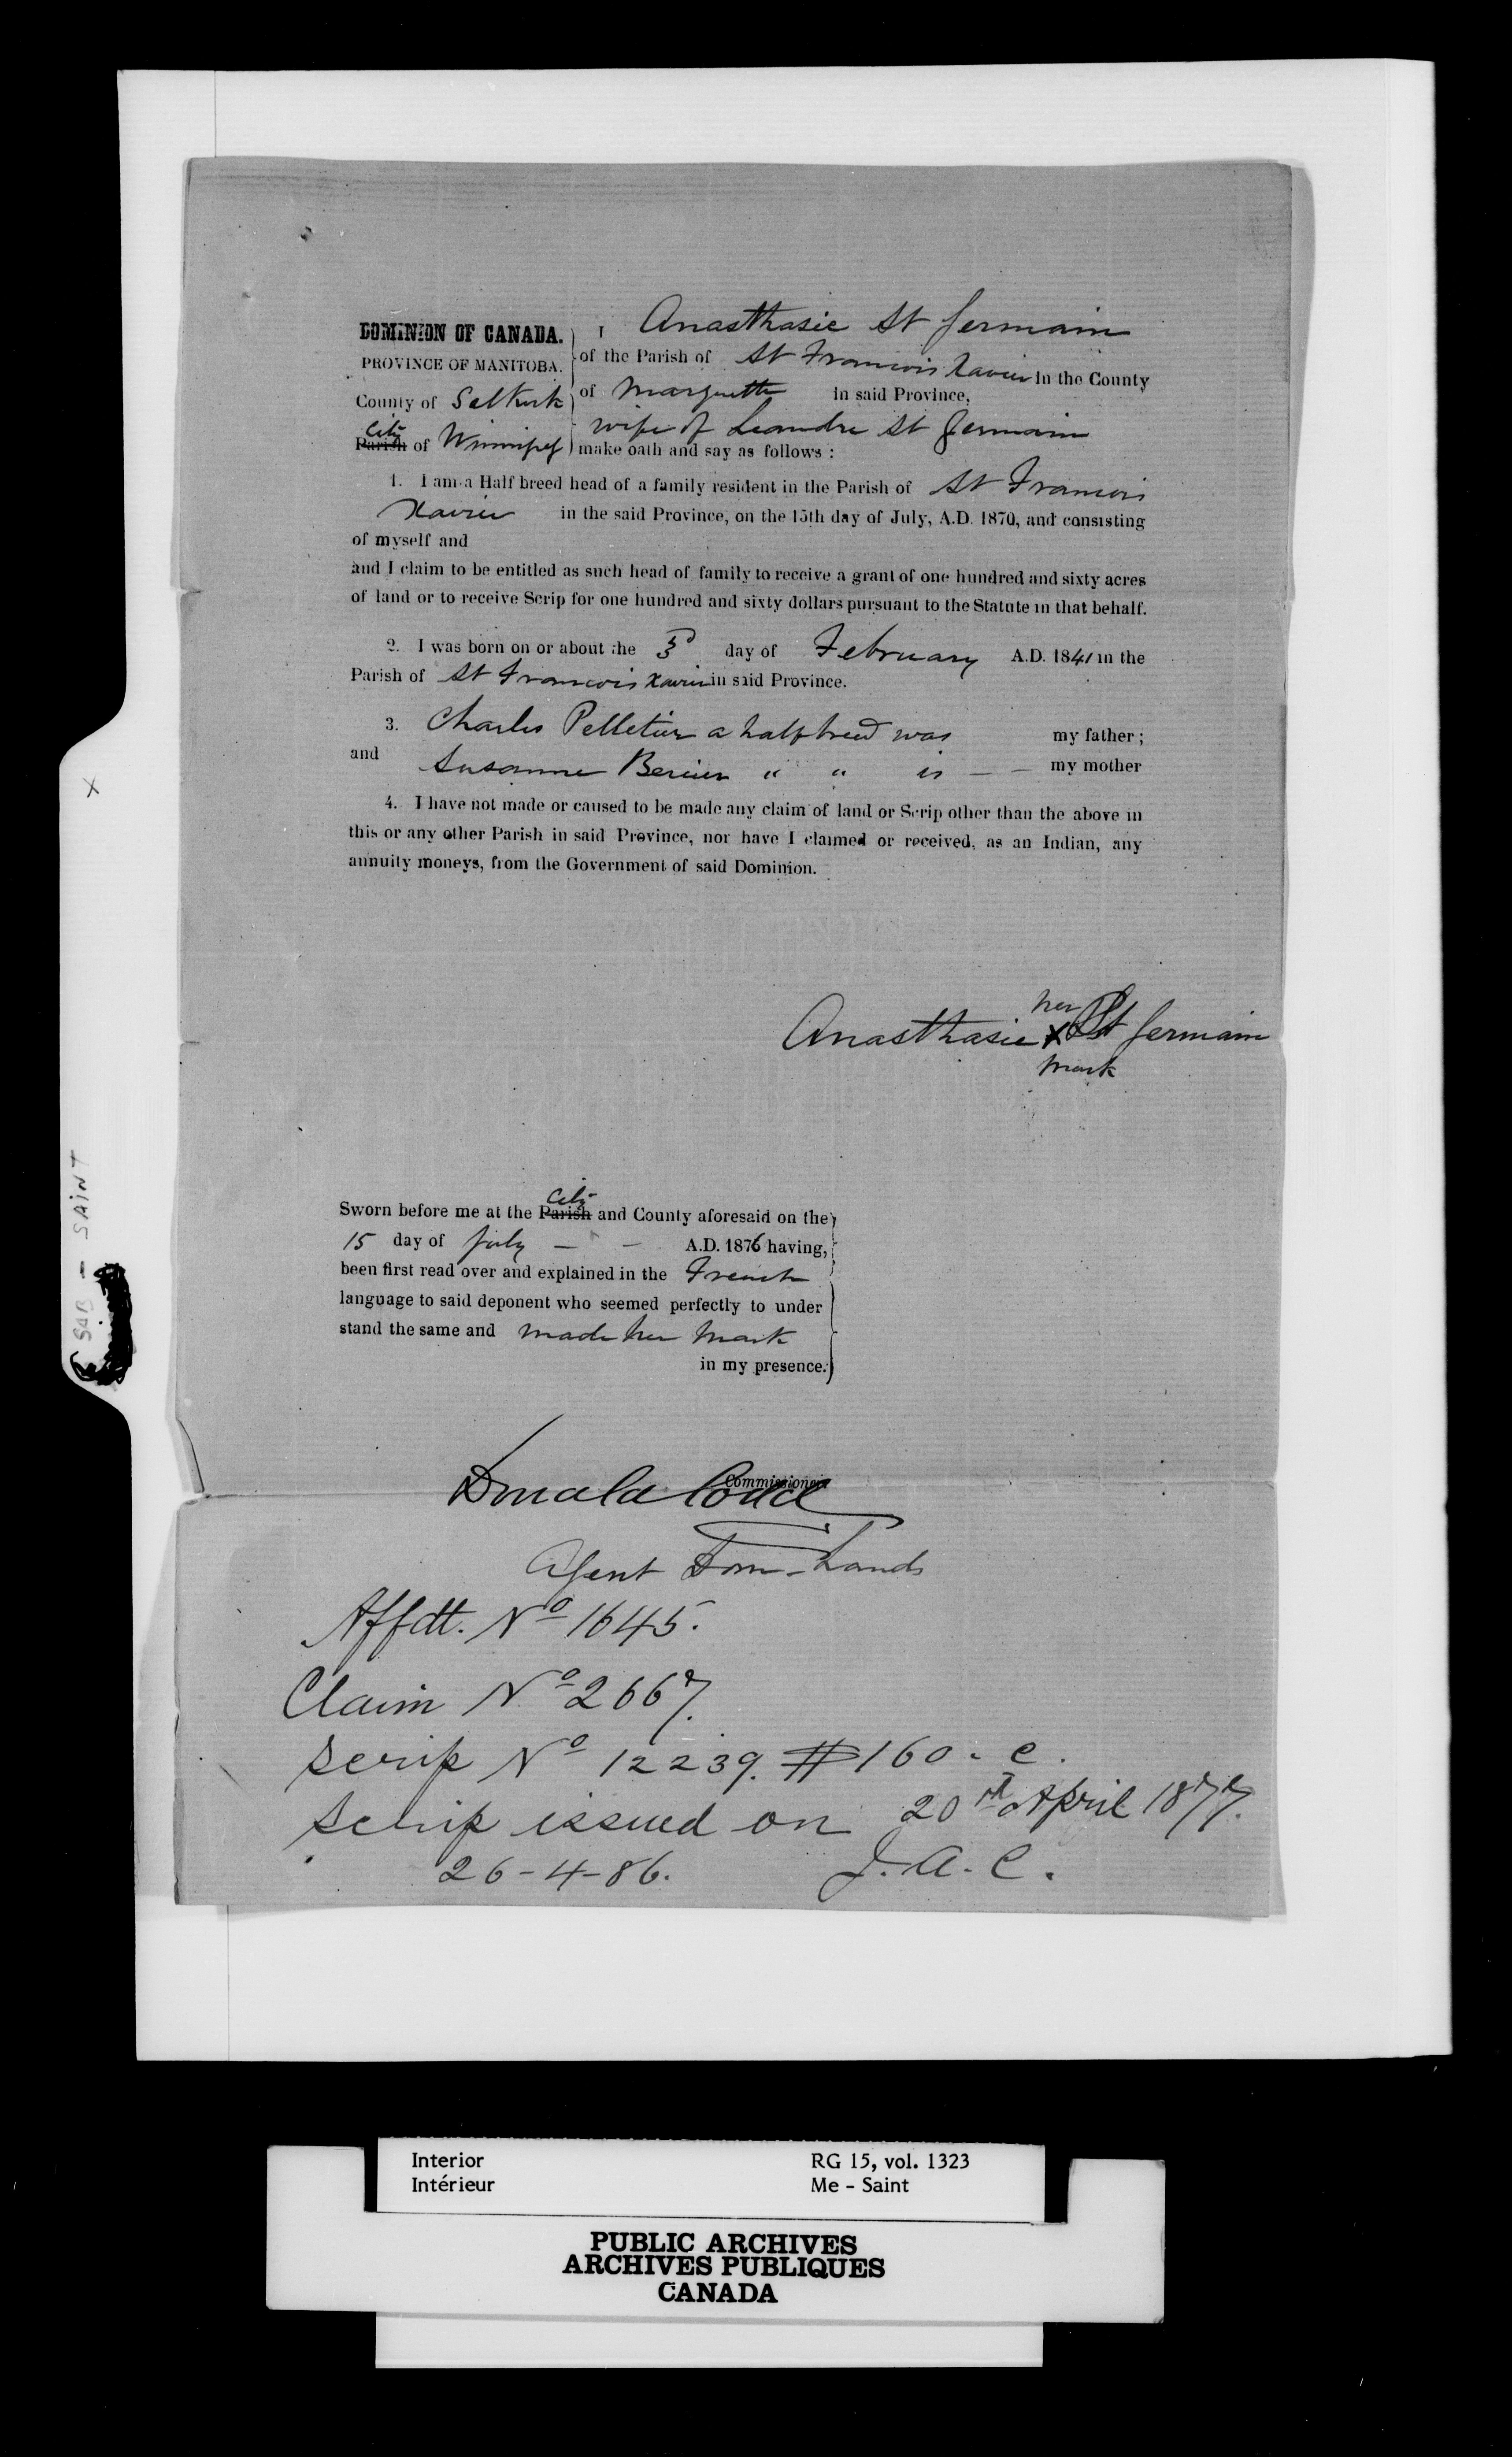 DOMINION OF CANADA.
PROVINCE OF MANITOBA.
County of Selkirk
City
Parish of Winnipeg
I Anasthasie St Germain
of the Parish of St Francois Xavier in the County
of Marquette in said Province,
wife of Leandre St Germain
make oath and say as follows:
1. I am a Half breed head of a family resident in the Parish of St Francois
Xavier in the said Province, on the 15th day of July, A.D. 1870, and consisting
of myself and
and I claim to be entitled as such head of family to receive a grant of one hundred and sixty acres
of land or to receive Scrip for one hundred and sixty dollars pursuant to the Statute in that behalf.
2. I was born on or about the day of February A.D. 1841 in the
Parish of St Francois Xavier in said Province.
3. Charles Pelletier a half breed was my father;
and Susanne Bercier " " is — — my mother
4. I have not made or caused to be made any claim of land or Scrip other than the above in
this or any other Parish in said Province, nor have I claimed or received, as an Indian, any
annuity moneys, from the Government of said Dominion.
her
Anasthasie X St Germain
mark
City
Sworn before me at the Parish and County aforesaid on the
15 day of July — — A.D. 1876 having,
been first read over and explained in the French
language to said deponent who seemed perfectly to under
stand the same and made her mark
in my presence.
Commissioner
Donald Codd
Agent Dom. Lands
Affdt. No 1645.
Claim No 2667.
Scrip No 12239. $160. c.
Scrip issued on 20th April 1877.
26-4-86. J. A. C.
SAB - SAINT
X
Interior RG 15, vol. 1323
Intérieur Me - Saint
PUBLIC ARCHIVES
ARCHIVES PUBLIQUES
CANADA